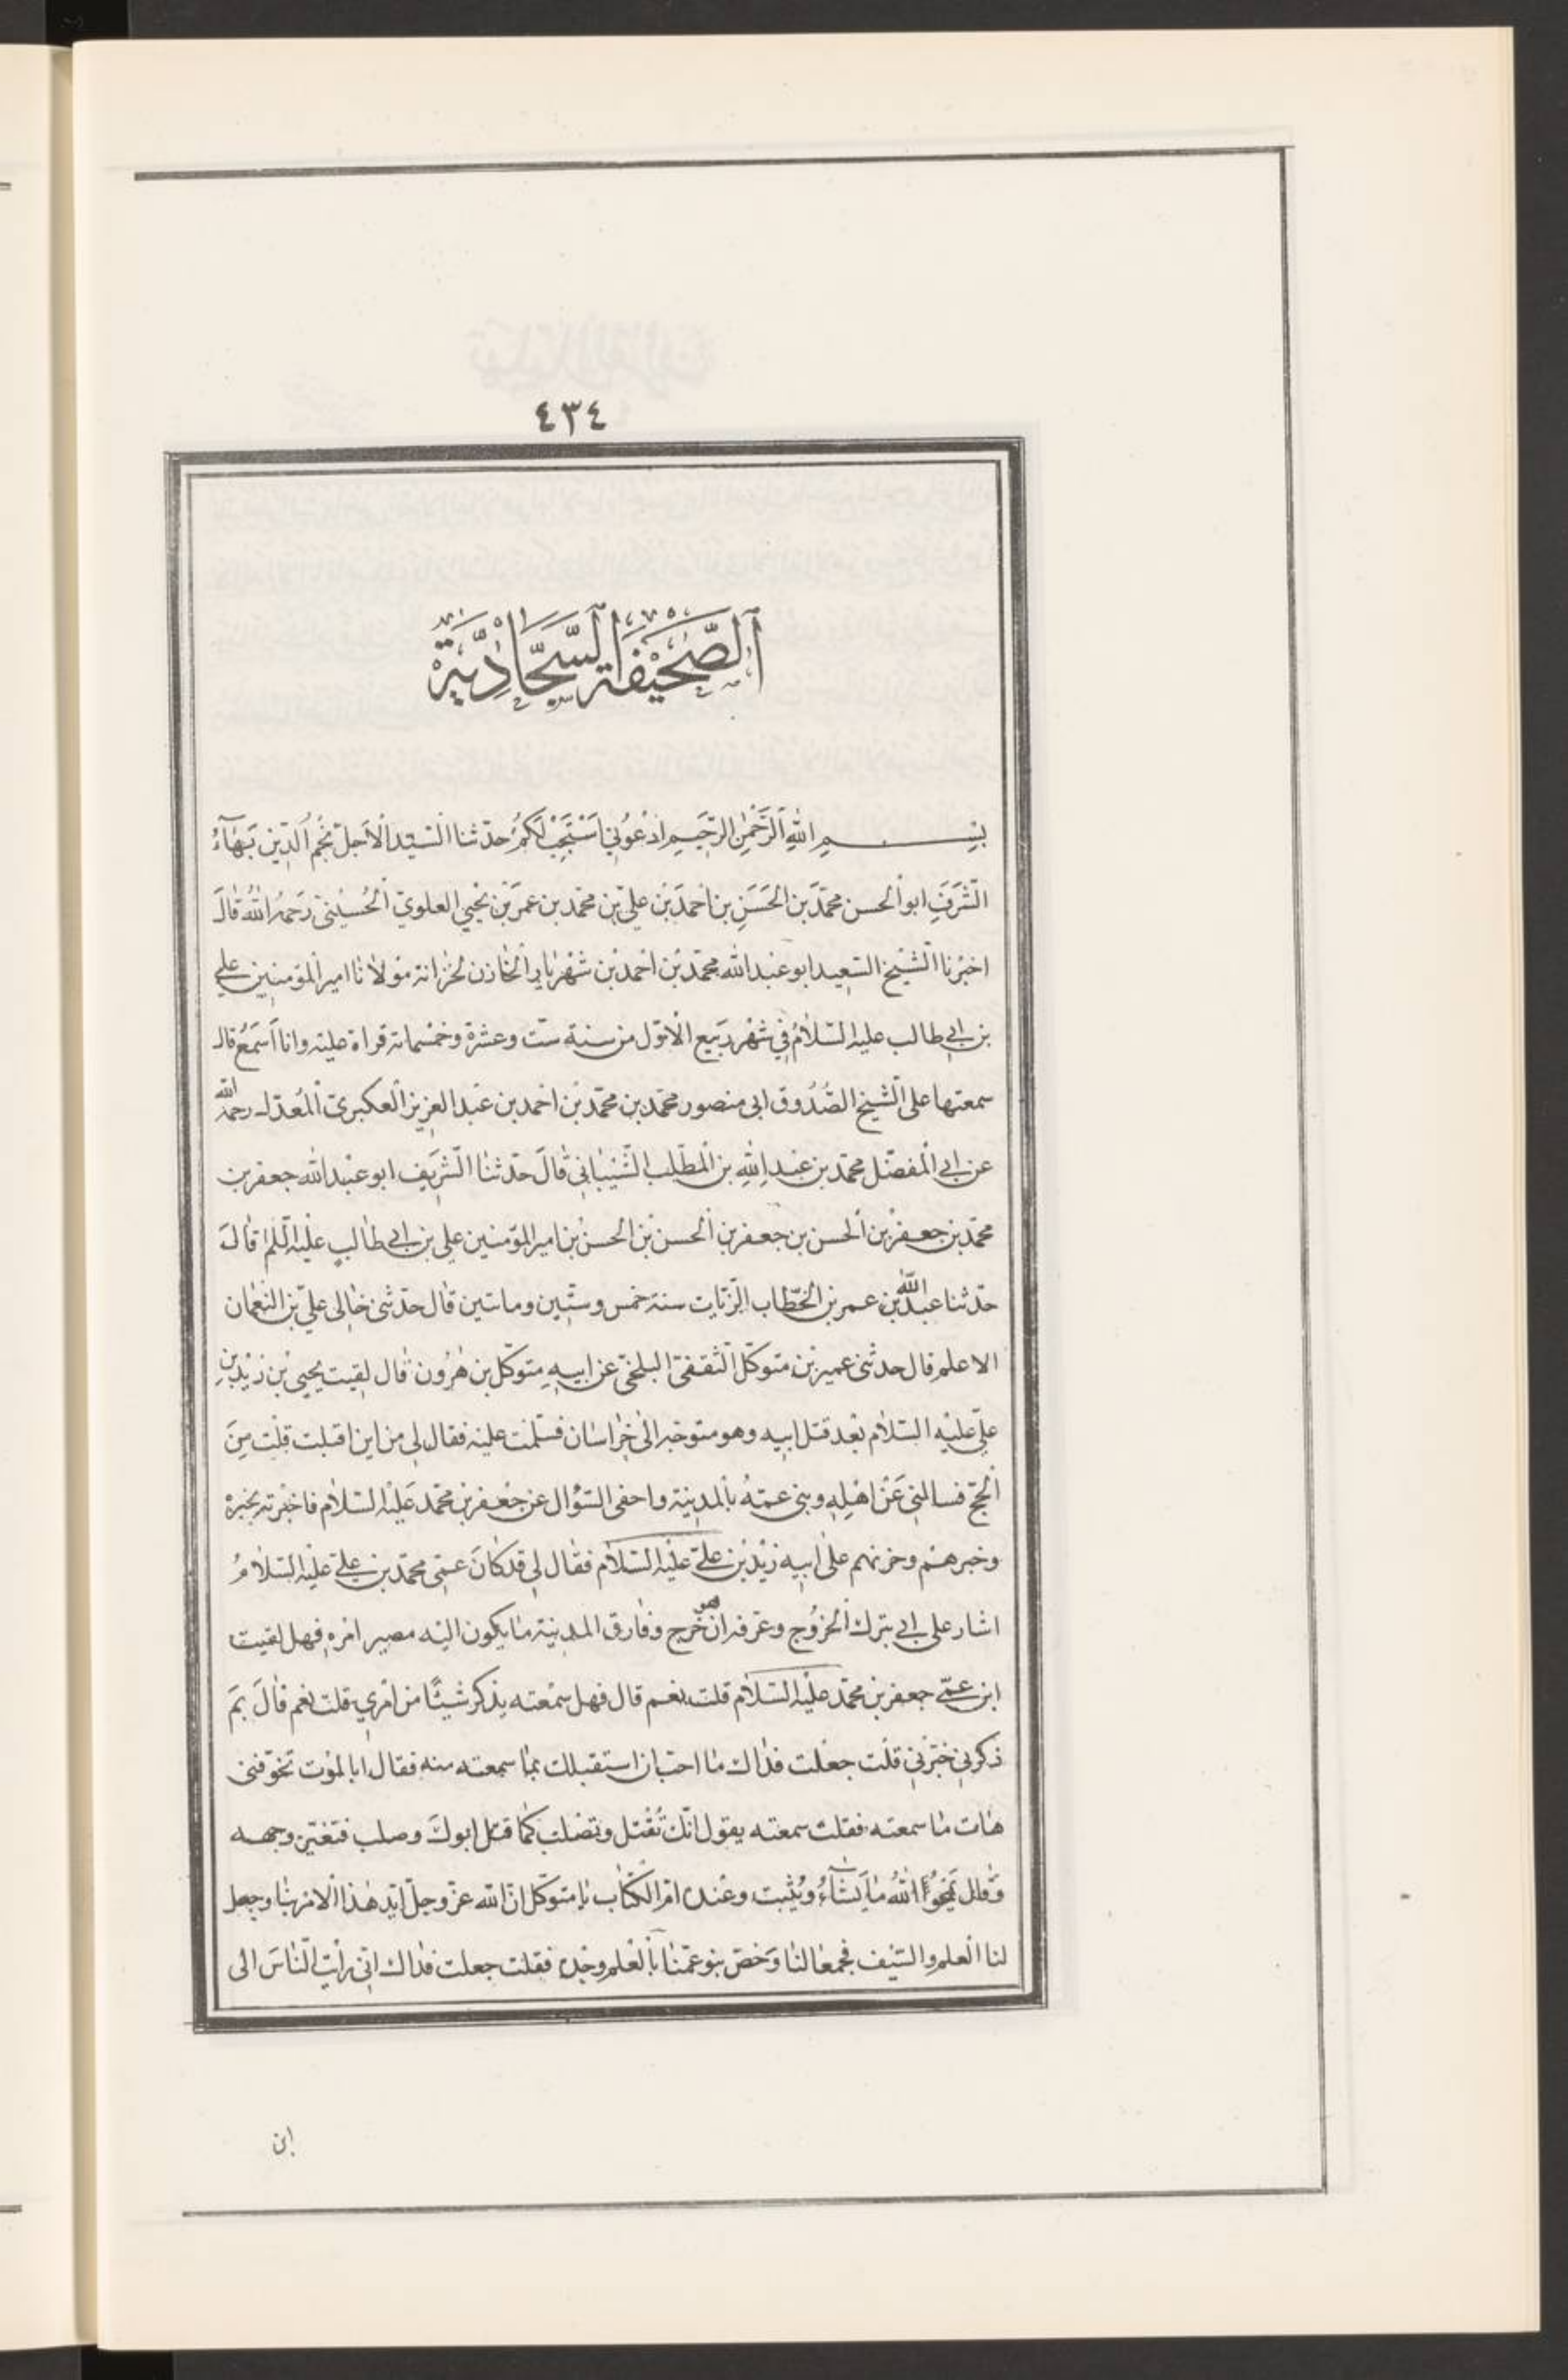 ٤٣٤
اَلصَّحيْفَة السَّجّاديَّة
بِسْمِ اللهِ اَلرَّحْمٰنِ الرَّحيم اُدْعُوني اَسْتَجِبْ لَكُمْ حدّثنا السّيّد الْاَجلّ نجْم اُلدّين بَهٰٓاءُ
الشَّرَفِ ابو اْلحسن محمّدَ بن الحَسَنِ بن اَحْمدَ بْن عليّ بن محمّد بن عمَرَ بْن يحْيي العلويّ اْلحُسيْنيّ رَحمه اللّٰه قٰالَ
اخبْرنا الْشّيْخ السّعيد ابو عبْد الله محمّد بْن احْمد بْن شهْريٰار الْخٰازن لخزٰانة موْلانٰا امير الْمؤمنين علي
بن ابي طالب عليه السّلامُ في شهْر ربَيع الْاَوّل من سنة ستّ وعشرة وخمْسمائة قراءة عليْه وانا اَسمَعُ قال
سمعتها على الْشّيخ الصّدُوق ابى منصور محمّد بن محمّد بْن احمد بن عبْد العزيز الْعكبريّ الْمُعدّل رحمه الله
عن ابي الْمفضّل محمّد بن عبْد اللهِ بن الْمطّلب الشّيْبٰاني قٰالَ حدّثنا الْشّريَف ابو عبْد الله جعفر بن
محمّد بن جعفرْ بن اْلحسن بن جعفر بن اْلحسن بْن الحسنْ بن امير المؤمنين علي بن ابي طٰالبٍ عليْه السّلم قٰالَ
حدّثنا عبد اللّٰه بن عمر بن الخطّاب الزّيّات سنة خمس وستّين ومائتين قٰال حدّثنى خٰالى عليّ بن النعْمان
الاعلم قال حدثنى عمير بْن متوكّل الْثقفىّ البلخىّ عن ابيهِ متوكّل بن هٰرُون قٰال لقيت يحيى بْن زيْد بْنِ
عليّ عليْه السّلاٰم بعْد قتل ابيه وهو متوجّه الىٰ خُراسٰان فسلّمت عليْه فقال لي من اين اقبلت قلْت مِنَ
اْلحجّ فسالنى عَنْ اهْلِهِ وبنى عمّهُ بالمدينة واحفى السّؤال عن جعْفر بن محمّد عَليْه السّلاٰم فاخبرْته بخبرهْ
وخبرهم وحزنهم علىٰ ابيه زيْد بْن عليّ عليْه السّلاٰم فقٰال لي قدكٰانَ عمّى محمّد بن علي عليْه السّلاٰمُ
اشٰار على ابي بترك اْلخرُوج وعرّفه ان هو خرج وفٰارق المدينة مٰا يكون اليْه مصير امْره فهل لقيت
ابن عمّي جعفر بن محمّد عليْه السّلاٰم قلت نعم قال فهل سمْعته يذكر شيْئًا من امْري قلت نعم قٰالَ بمَ
ذكرني خبّرْنى قلْت جعلْت فدٰاك مٰا احبّ ان استقبلك بمٰا سمعته منه فقال ابا لموْت تخوّفنى
هٰات مٰا سمعته فقلت سمعته يقول انّك تُقْتل وتصْلب كمٰا قتل ابوك وصلب فتغيّر وجهه
وَقٰال يَمْحُوُ اللّٰهُ مٰا يَشٰآءُ ويُثْبت وعنْده امّ الكتٰاب يٰا متوكّل انّ الله عزّ وجلّ ايّد هٰذا الْامْر بنٰا وجعل
لنا الْعلم والسّيْف فجمعٰا لنٰا وَخصّ بنو عمّنٰا بالْعلم وحْده فقلت جعلت فدٰاك انّي رايْت الْنّٰاسَ الى
ابن